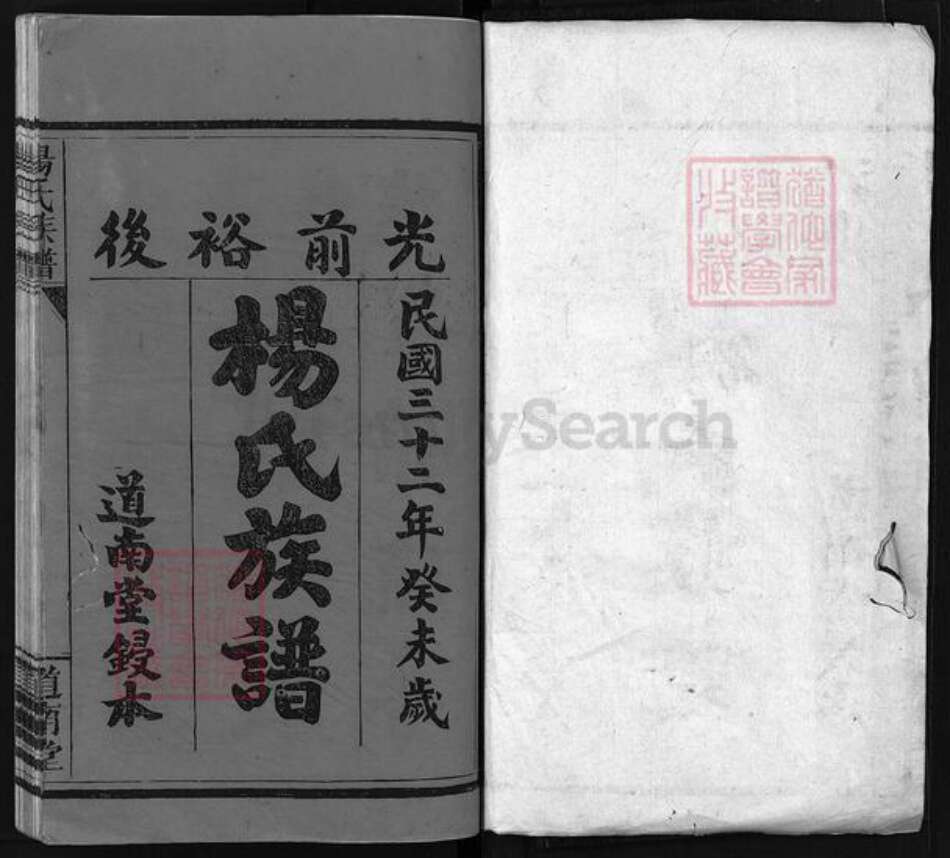 猶他家
譜學會
收藏
光前裕後
民國三十二年癸未歲
楊氏族譜
道南堂鋟本
楊氏族譜
道南堂
ySearch